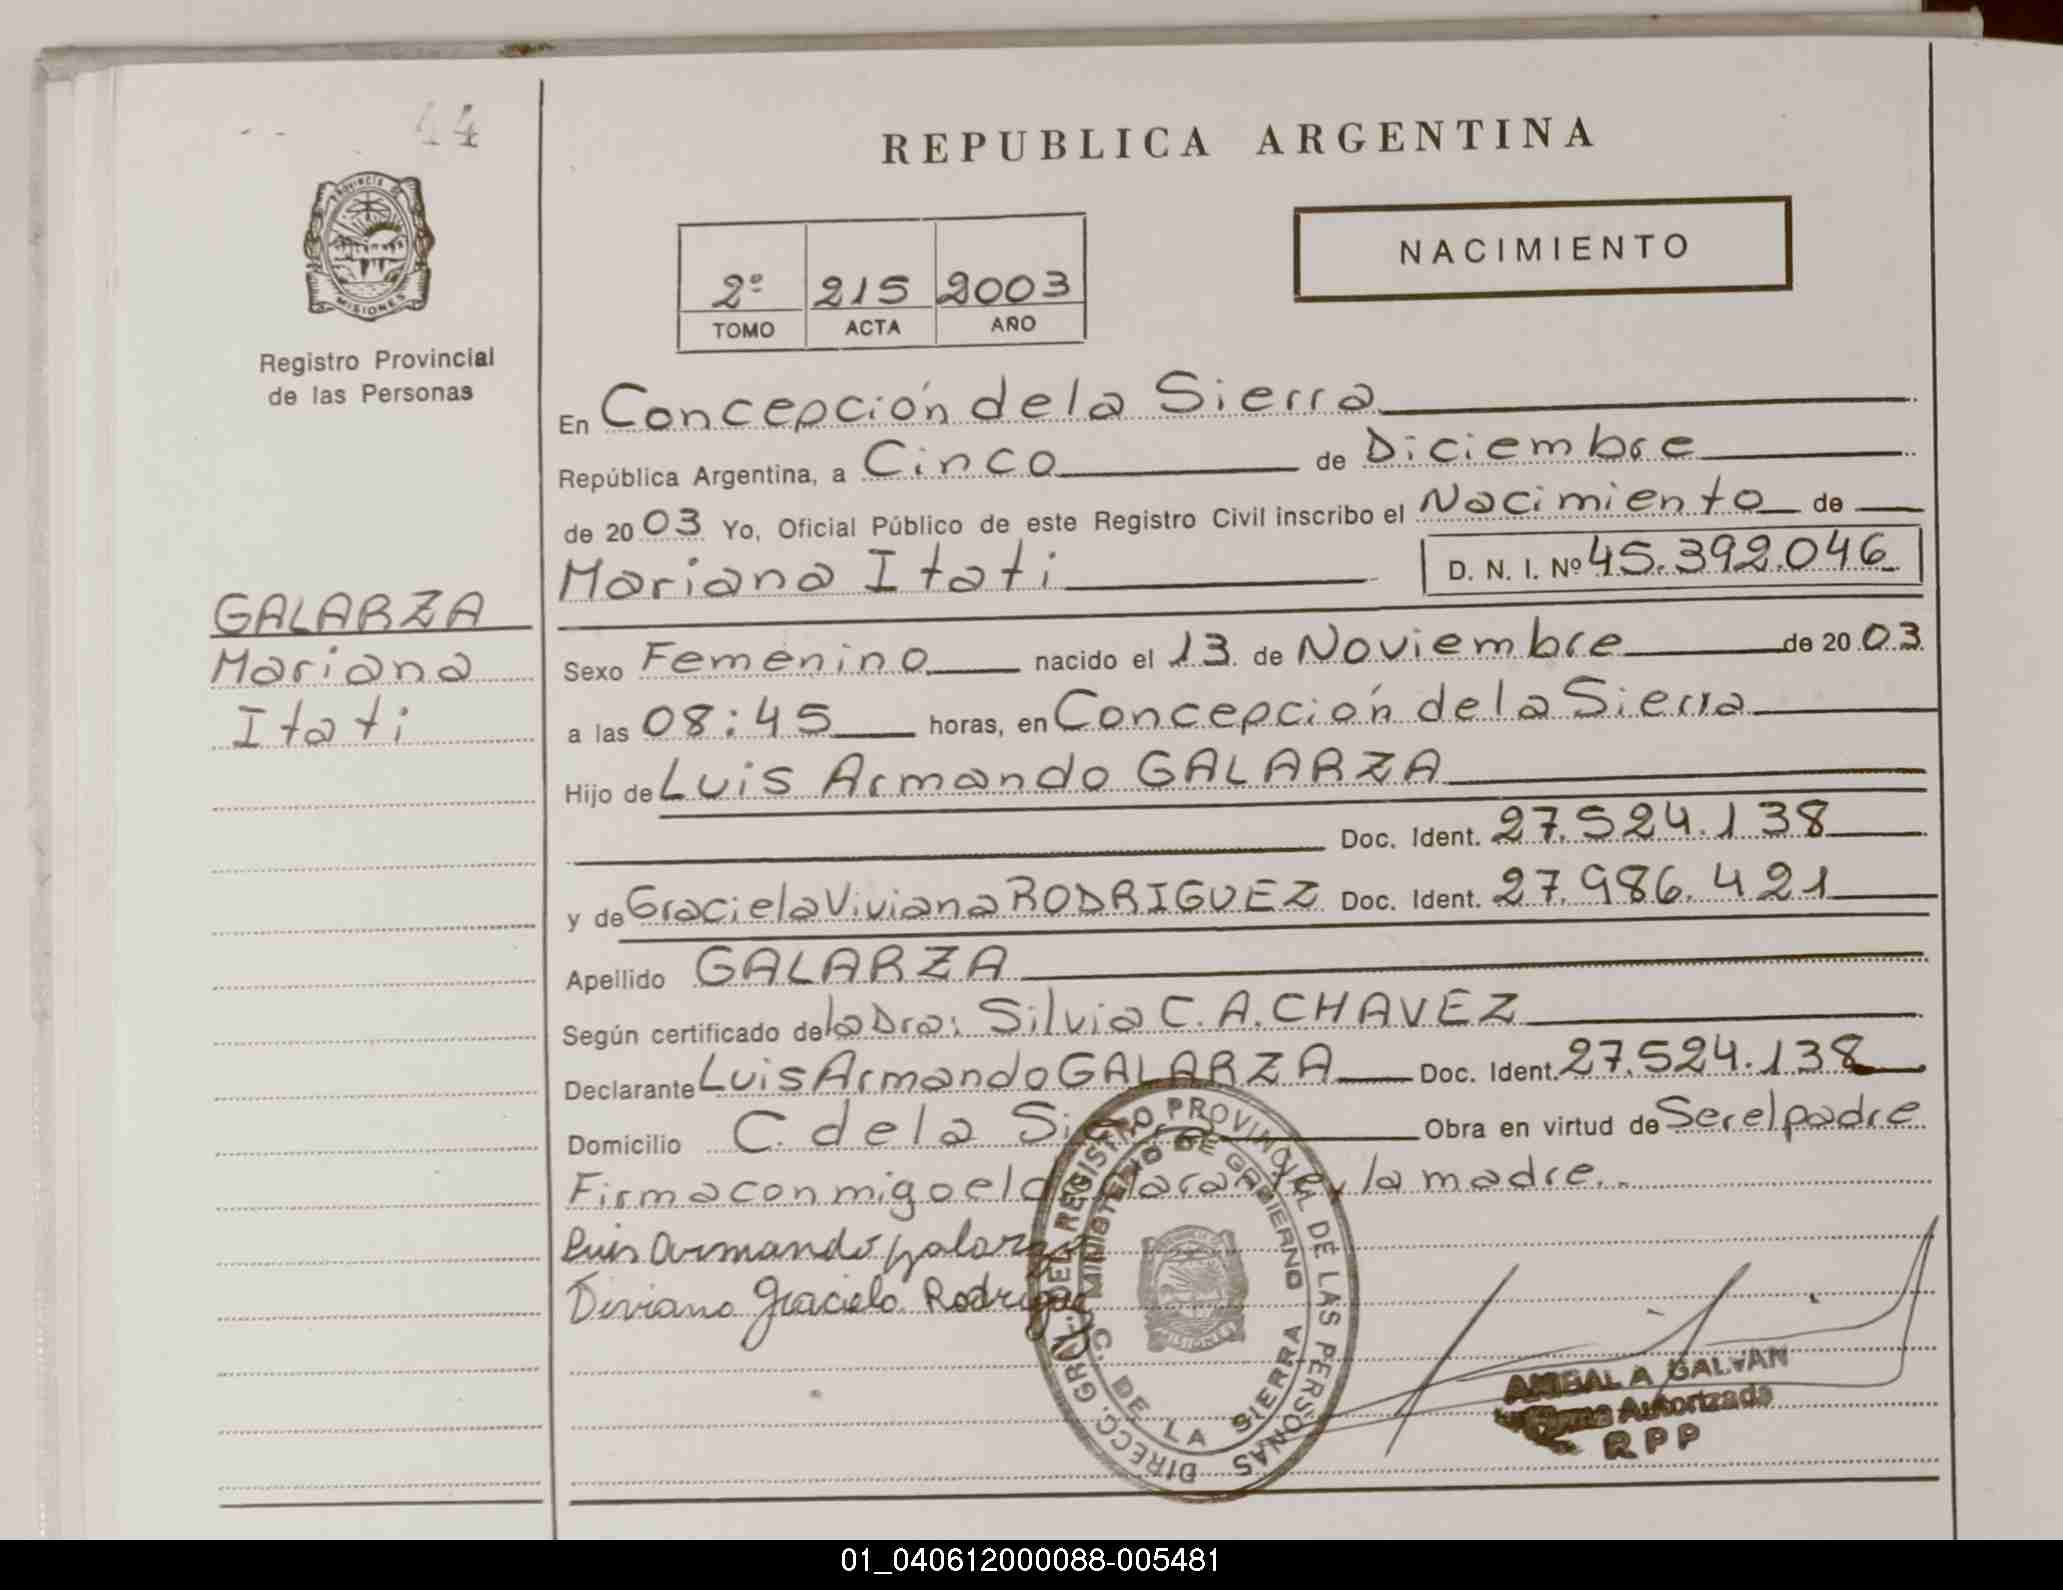 44
PROVINCIA DE
MISIONES
Registro Provincial
de las Personas
GALARZA
Mariana
Itati
REPUBLICA ARGENTINA
2º 215 2003
TOMO ACTA AÑO
NACIMIENTO
En Concepción de la Sierra
República Argentina, a Cinco de Diciembre
de 2003 Yo, Oficial Público de este Registro Civil inscribo el Nacimiento de
Mariana Itati D. N. I. Nº 45.392.046
Sexo Femenino nacido el 13 de Noviembre de 2003
a las 08:45 horas, en Concepción de la Sierra
Hijo de Luis Armando GALARZA
Doc. Ident. 27.524.138
y de Graciela Viviana RODRIGUEZ Doc. Ident. 27.986.421
Apellido GALARZA
Según certificado de la Dra: Silvia C. A. CHAVEZ
Declarante Luis Armando GALARZA Doc. Ident. 27.524.138
Domicilio C. de la Sierra Obra en virtud de Ser el padre
Firma conmigo el declarante y la madre.
Luis Armando Galarza
Viviana Graciela Rodriguez
DIRECC. GRAL. DEL REGISTRO PROVINCIAL DE LAS PERSONAS
MINISTERIO DE GOBIERNO
C. DE LA SIERRA
MISIONES
ANIBAL A GALVAN
Firma Autorizada
RPP
01_040612000088-005481